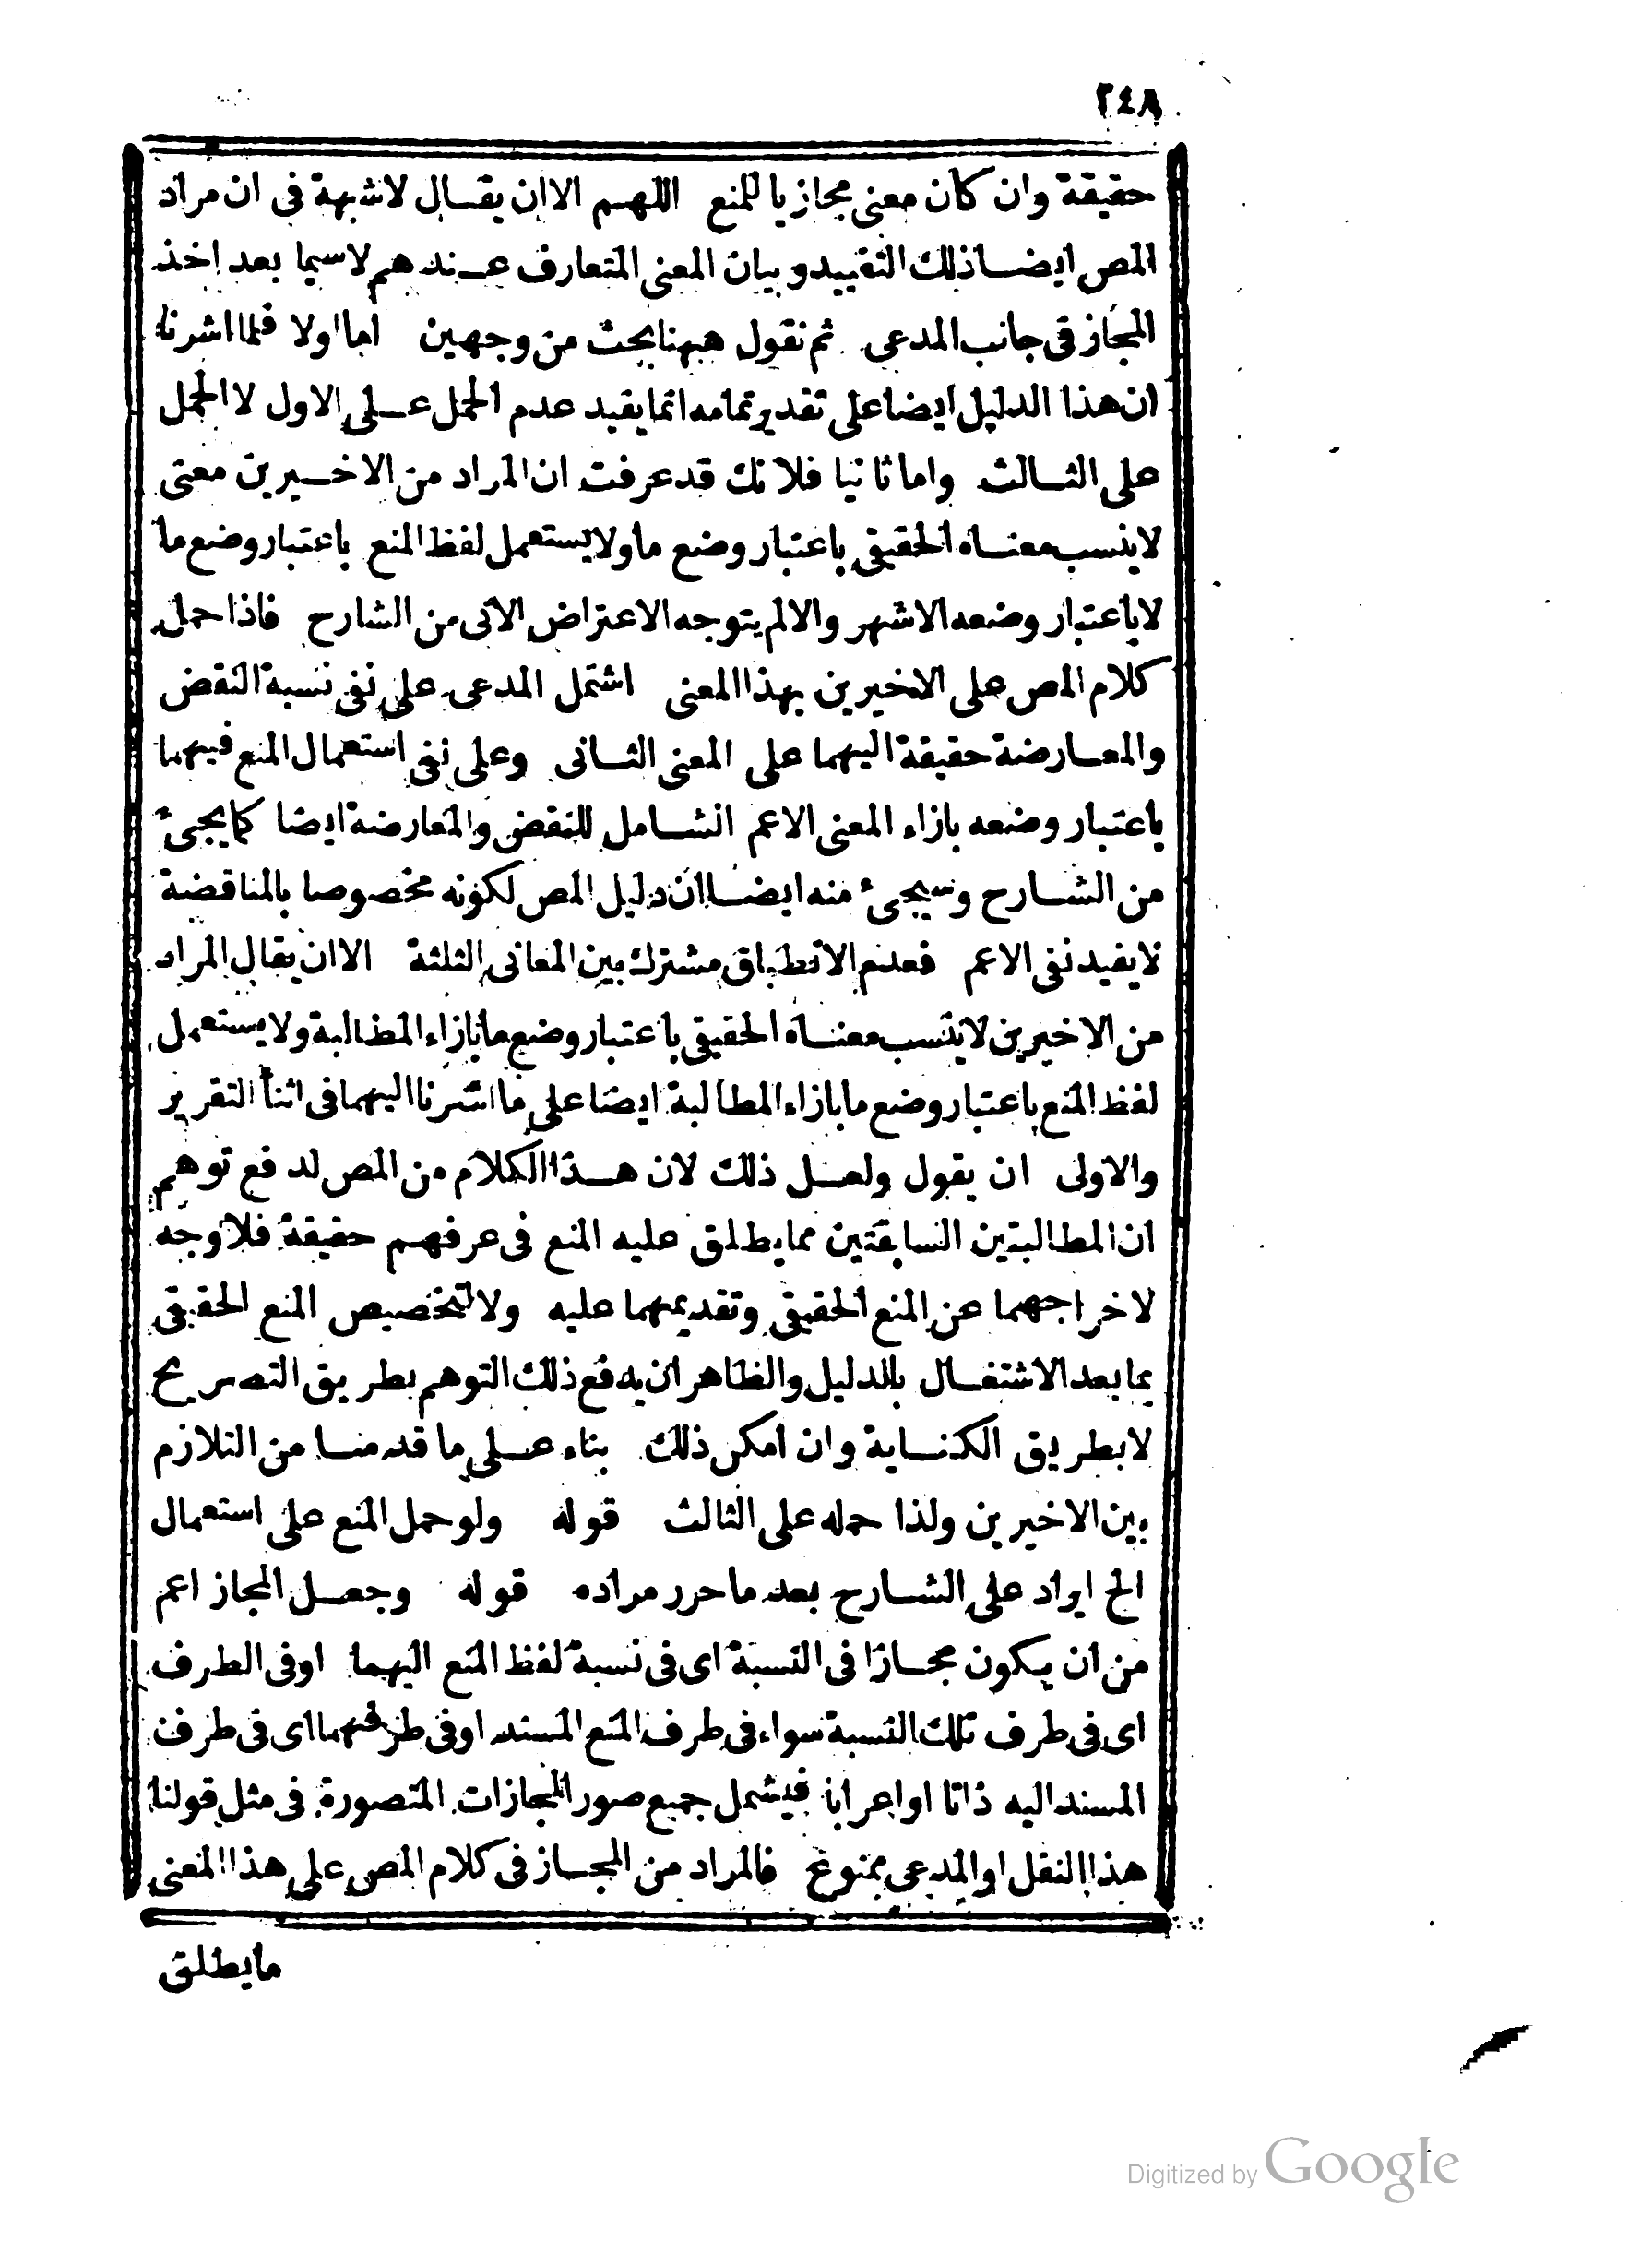 ٢٤٨
حقيقة وان كان معنى مجازيا للمنع اللهم الا ان يقال لاشبهة فى ان مراد
المص ايضا ذلك التقييد و بيان المعنى المتعارف عندهم لاسيما بعد اخذ
المجاز فى جانب المدعى ثم نقول ههنا بحث من وجهين اما اولا فلما اشرنا
ان هذا الدليل ايضا على تقدير تمامه انما يفيد عدم الحمل على الاول لا الحمل
على الثالث واما ثانيا فلانك قد عرفت ان المراد من الاخيرين معنى
لا ينسب معناه الحقيقى باعتبار وضع ما ولا يستعمل لفظ المنع باعتبار وضع ما
لا باعتبار وضعه الاشهر والا لم يتوجه الاعتراض الآتى من الشارح فاذا حمل
كلام المص على الاخيرين بهذا المعنى اشتمل المدعى على نفى نسبة النقض
والمعارضة حقيقة اليهما على المعنى الثانى وعلى نفى استعمال المنع فيهما
باعتبار وضعه بازاء المعنى الاعم الشامل للنقض والمعارضة ايضا كما يجئ
من الشارح وسيجئ منه ايضا ان دليل المص لكونه مخصوصا بالمناقضة
لا يفيد نفى الاعم فعدم الانطباق مشترك بين المعانى الثلثة الا ان يقال المراد
من الاخيرين لا ينسب معناه الحقيقى باعتبار وضع ما بازاء المطالبة ولا يستعمل
لفظ المنع باعتبار وضع ما بازاء المطالبة ايضا على ما اشرنا اليهما فى اثناء التقرير
والاولى ان يقول ولعل ذلك لان هذا الكلام من المص لدفع توهم
ان المطالبتين السابقتين مما يطلق عليه المنع فى عرفهم حقيقة فلا وجه
لاخراجهما عن المنع الحقيقى وتقديمهما عليه ولا لتخصيص المنع الحقيقى
بما بعد الاشتغال بالدليل والظاهر ان يدفع ذلك التوهم بطريق التصريح
لا بطريق الكناية وان امكن ذلك بناء على ما قدمنا من التلازم
بين الاخيرين ولذا حمله على الثالث قوله ولو حمل المنع على استعمال
الخ ايراد على الشارح بعد ما حرر مراده قوله وجعل المجاز اعم
من ان يكون مجازا فى النسبة اى فى نسبة لفظ المنع اليهما او فى الطرف
اى فى طرف تلك النسبة سواء فى طرف المنع المسند او فى طرفهما اى فى طرف
المسند اليه ذاتا او اعرابا فيشمل جميع صور المجازات المتصورة فى مثل قولنا
هذا النقل او المدعى ممنوع فالمراد من المجاز فى كلام المص على هذا المعنى
مايطلق
Digitized by Google